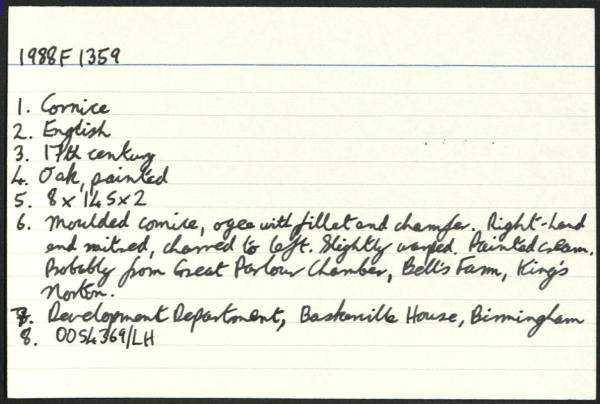 1988F1359
1. Cornice
2. English
3. 17th century
4. Oak, painted
5. 8 x 145 x 2
6. Moulded cornice, ogee with fillet and chamfer. Right-hand
end mitred, charred to left. Slightly warped. Painted cream.
Probably from Great Parlour Chamber, Bell's Farm, King's
Norton.
7. Development Department, Baskerville House, Birmingham
8. 0054369/LH